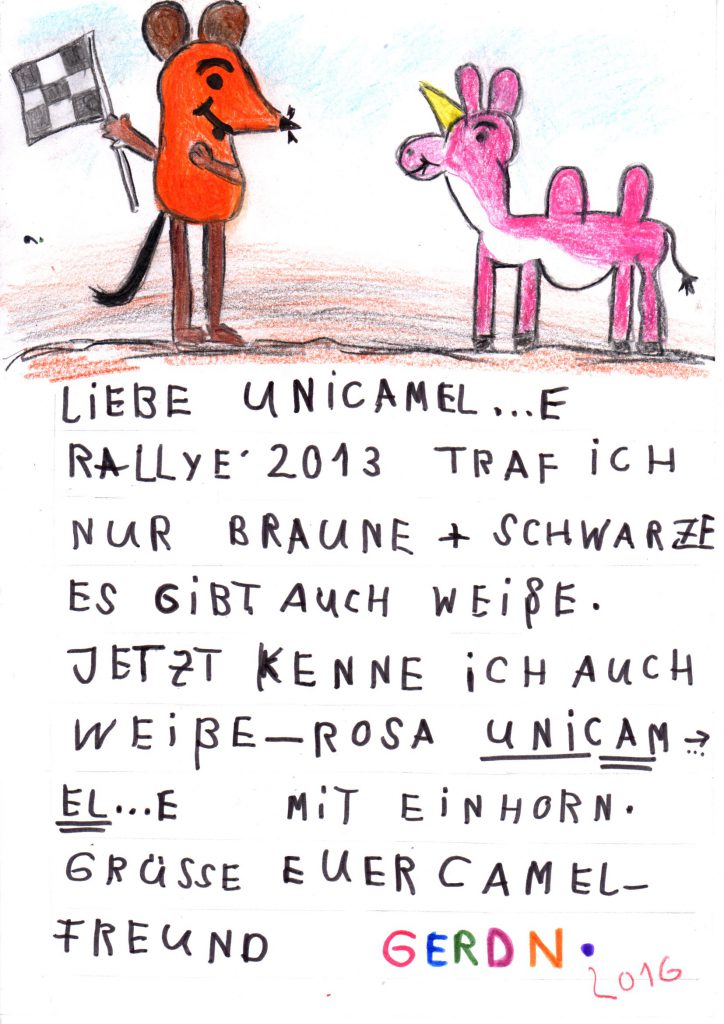 LiEBE UNiCAMEL...E
RALLYE´2013 TRAF iCH
NUR BRAUNE + SCHWARZE
ES GiBT AUCH WEißE.
JETZT KENNE iCH AUCH
WEißE–ROSA UNiCAM→
EL...E MiT EiNHORN.
GRÜSSE EUER CAMEL–
FREUND GERDN.
2016